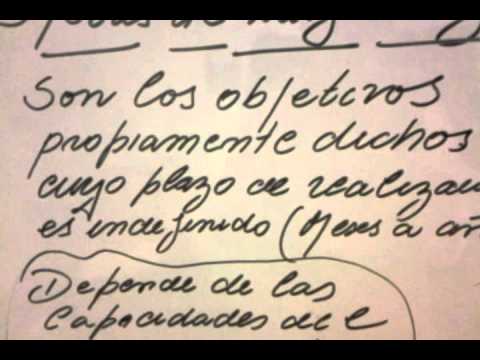 de
Son los objetivos
propiamente dichos
cuyo plazo de realizac
es indefinido (Meses a añ
Depende de las
Capacidades del